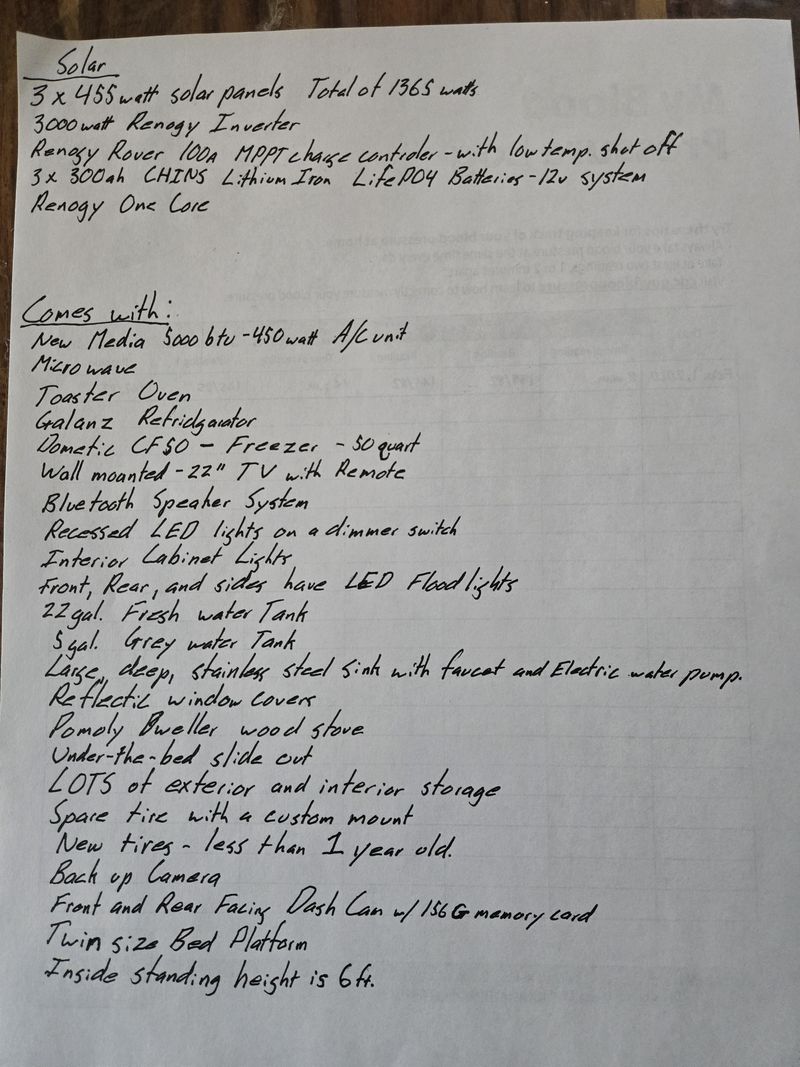 Solar
3 x 455 watt solar panels Total of 1365 watts
3000 watt Renogy Inverter
Renogy Rover 100A MPPT charge controler - with low temp. shut off
3x 300ah CHINS Lithium Iron LifePO4 Batteries - 12v system
Renogy One Core
Comes with:
New Media 5000 btu - 450 watt A/C unit
Microwave
Toaster Oven
Galanz Refridgarator
Dometic CF50 - Freezer - 50 quart
Wall mounted - 22" TV with Remote
Bluetooth Speaker System
Recessed LED lights on a dimmer switch
Interior Cabinet Lights
Front, Rear, and sides have LED Flood lights
22 gal. Fresh water Tank
5 gal. Grey water Tank
Large, deep, stainless steel sink with faucet and Electric water pump.
Reflectic window covers
Pomoly Dweller wood stove
Under-the-bed slide out
LOTS of exterior and interior storage
Spare tire with a custom mount
New tires - less than 1 year old.
Back up Camera
Front and Rear Facing Dash Cam w/ 156G memory card
Twin size Bed Platform
Inside standing height is 6ft.